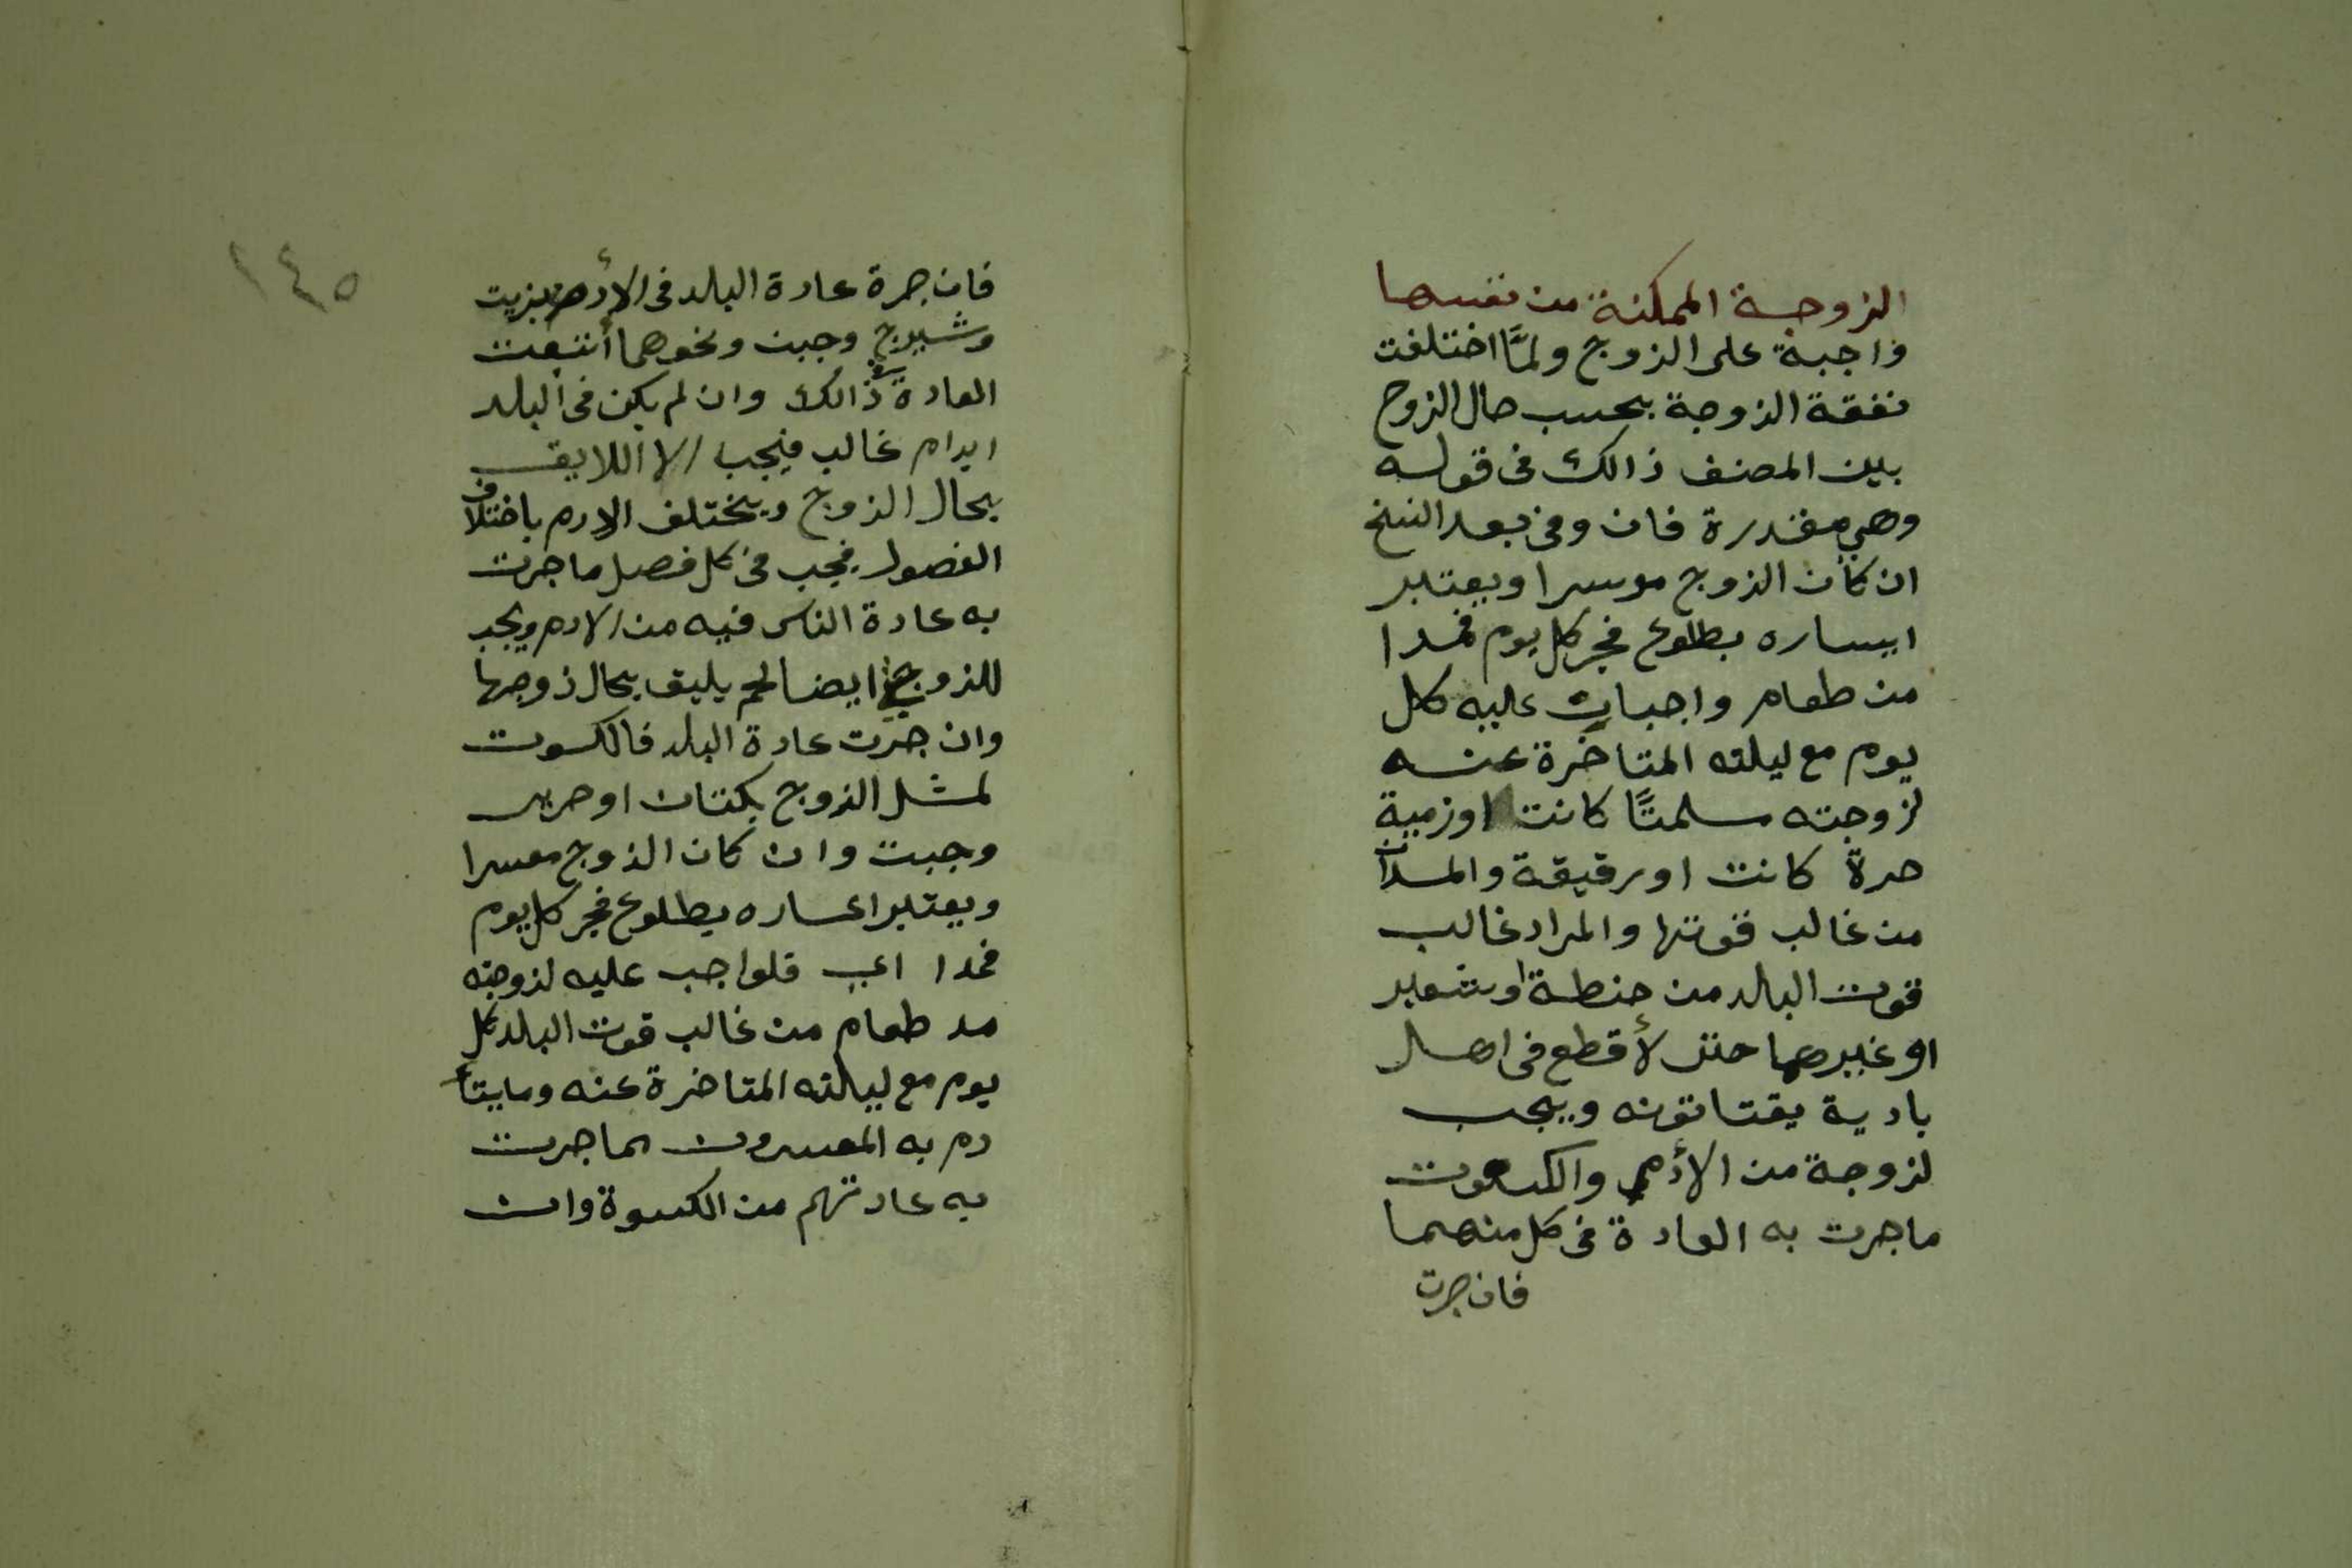 الزوجة الممكنة من نفسها
واجبة على الزوج ولمَّا اختلفت
نفقة الزوجة بحسب حال الزوج
بين المصنف ذالك فى قوله
وهي مقدرة فان وفى بعد النسخ
ان كان الزوج موسرا ويعتبر
ايساره بطلوع فجر كل يوم فمدا
من طعام واجبات عليه كل
يوم مع ليلته المتاخرة عنه
لزوجته مسلمتًا كانت اوزمية
حرة كانت اورقيقة والمدان
من غالب قوتها والمراد غالب
قوت البلد من حنطة اوشعير
او غيرهما حتى لأقطع فى اهل
بادية يقتاتونه ويجب
لزوجة من الأدم والكسوت
ماجرت به العادة فى كل منهما
فان جرت
١٤٥
فان جرة عادة البلد فى الأدم بزيت
وشيرج وجبن ونحوهما أتبعت
العادة فى ذالك وان لم يكن فى البلد
ايدام غالب فيجب الا اللايق
بحال الزوج ويختلف الادم باختلاف
الفصول فيجب فى كل فصل ماجرت
به عادة الناس فيه من الادم ويجب
للزوج ايضا لحم يليق بحال زوجها
وان جرت عادة البلد فالكسوت
لمثل الزوج بكتان اوحرير
وجبت وان كان الزوج معسرا
ويعتبر اعساره بطلوع فجر كل يوم
فمدا اي فلواجب عليه لزوجته
مد طعام من غالب قوت البلد كل
يوم مع ليلته المتاخرة عنه ومايتأ
دم به المعسرون مماجرت
به عادتهم من الكسوة وان